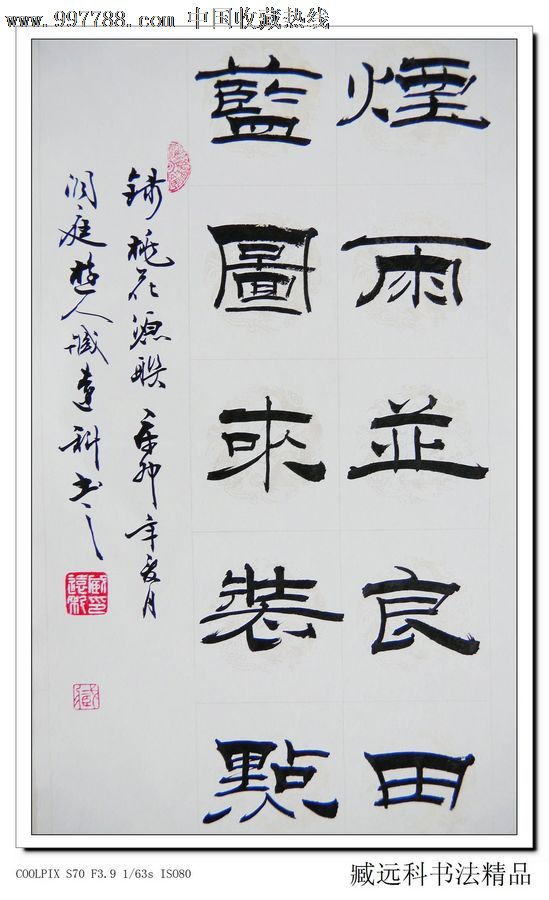 www.997788.com 中国收藏热线
煙雨並良田
藍圖來裝點
桃花源联 辛卯年夏月
洞庭遊人臧遠科书之
COOLPIX S70 F3.9 1/63s ISO80
臧远科书法精品